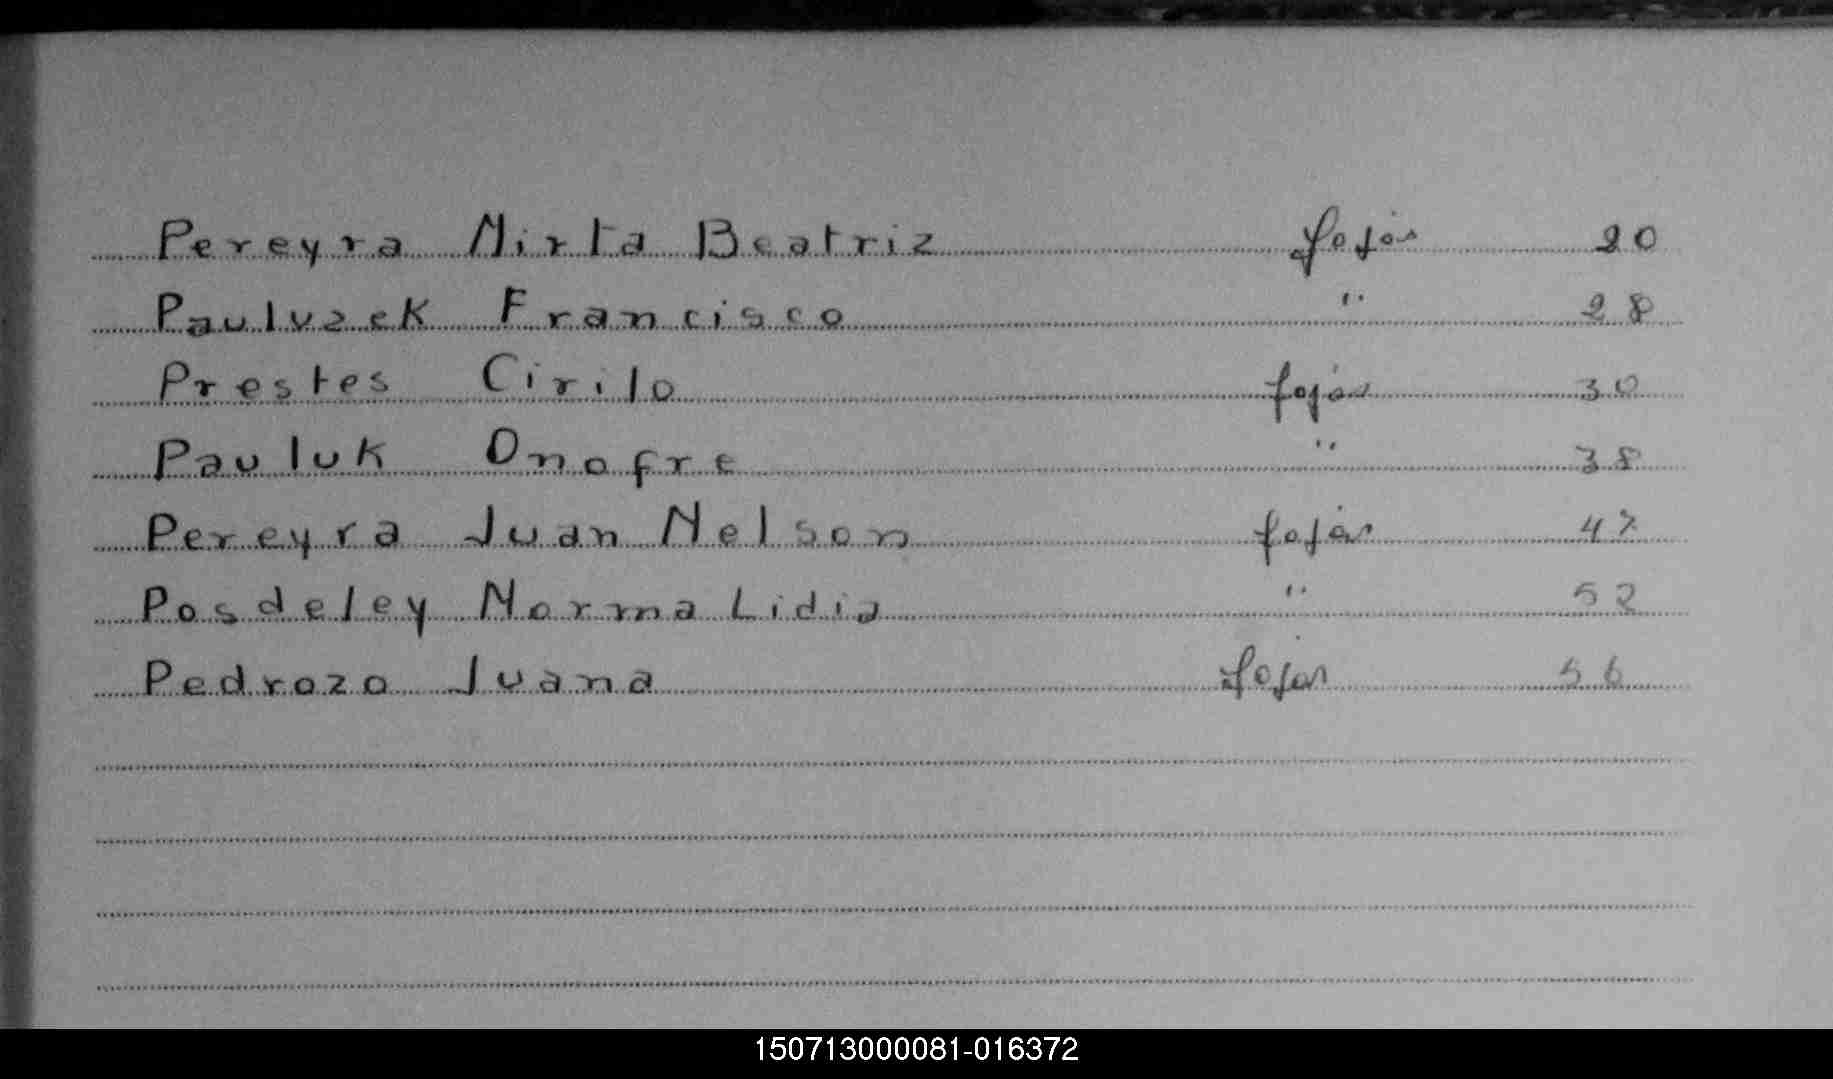 Pereyra Mirta Beatriz fojas 20
Pauluzek Francisco " 28
Prestes Cirilo fojas 30
Pauluk Onofre " 38
Pereyra Juan Nelson fojas 47
Posdeley Norma Lidia " 52
Pedrozo Juana fojas 56
150713000081-016372